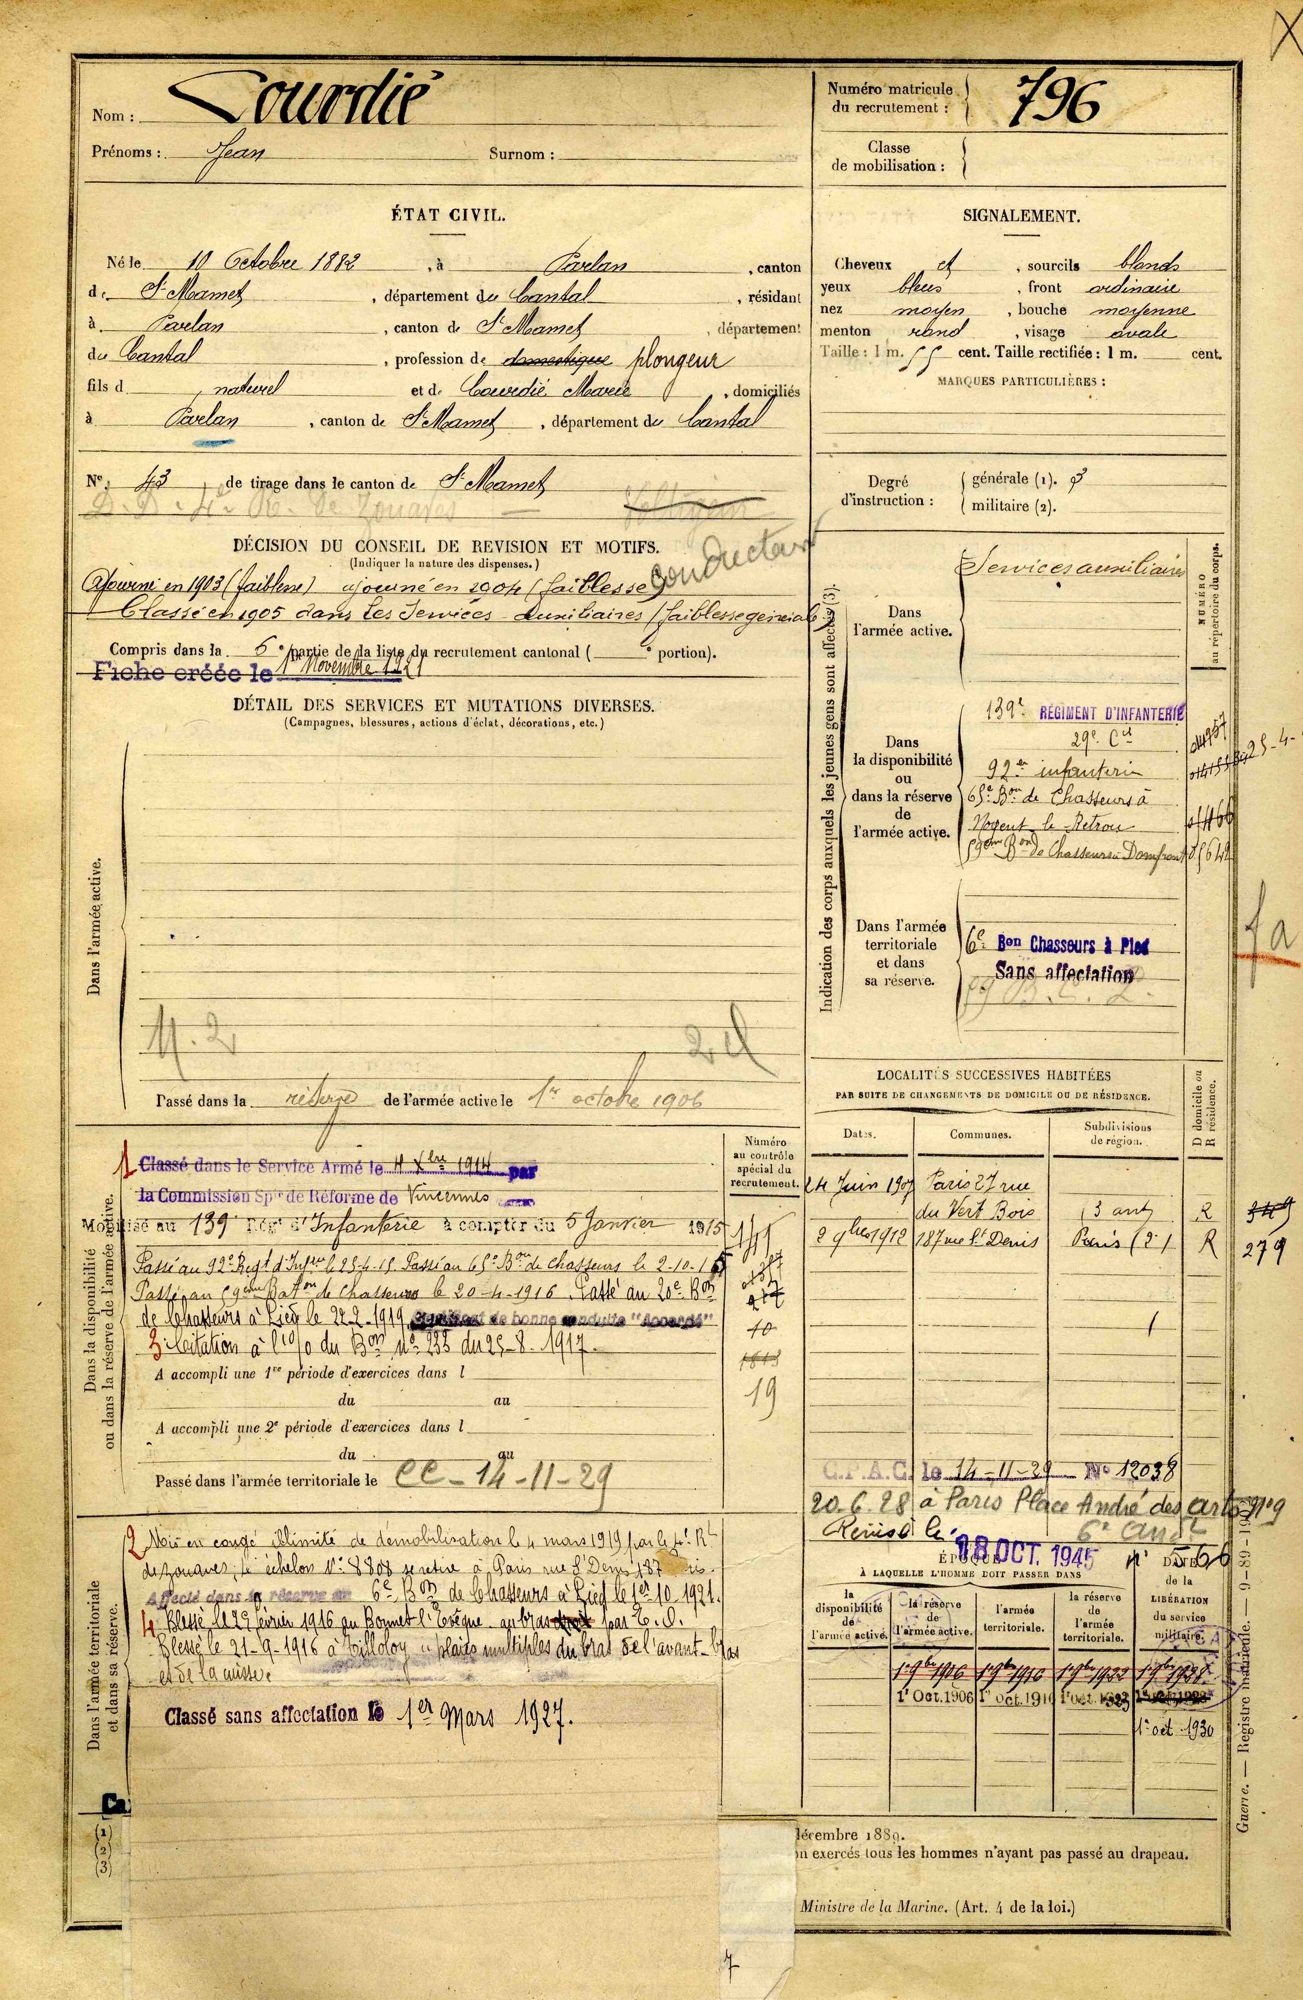 X
Nom : Courdié
Prénoms : Jean Surnom :
Numéro matricule du recrutement : 796
Classe de mobilisation :
ÉTAT CIVIL.
Né le 10 Octobre 1882, à Parlan, canton
de St Mamet, département du Cantal, résidant
à Parlan, canton de St Mamet, département
du Cantal, profession de domestique plongeur
fils d naturel et de Courdié Marie, domiciliés
à Parlan, canton de St Mamet, département du Cantal
N° 43 de tirage dans le canton de St Mamet
D. D. 4e R. de Zouaves
conducteur
SIGNALEMENT.
Cheveux et, sourcils blonds
yeux bleus, front ordinaire
nez moyen, bouche moyenne
menton rond, visage ovale
Taille : 1 m. 55 cent. Taille rectifiée : 1 m. cent.
MARQUES PARTICULIÈRES :
Degré d'instruction :
générale (1). 3
militaire (2).
DÉCISION DU CONSEIL DE REVISION ET MOTIFS.
(Indiquer la nature des dispenses.)
Ajourné en 1903 (faiblesse) ajourné en 1904 (faiblesse)
Classé en 1905 dans les Services Auxiliaires (faiblesse générale)
Compris dans la 6e partie de la liste du recrutement cantonal ( e portion).
Fiche créée le 1er Novembre 1921
DÉTAIL DES SERVICES ET MUTATIONS DIVERSES.
(Campagnes, blessures, actions d'éclat, décorations, etc.)
Dans l'armée active.
Passé dans la réserve de l'armée active le 1er octobre 1906
Indication des corps auxquels les jeunes gens sont affectés (3).
NUMÉRO au répertoire du corps.
Dans l'armée active.
Services auxiliaires
Dans la disponibilité ou dans la réserve de l'armée active.
139e RÉGIMENT D'INFANTERIE
29e Cie
92e infanterie
65e Bon de Chasseurs à
Nogent le Rotrou
59ème Bon de Chasseurs à Domfront
Dans l'armée territoriale et dans sa réserve.
6e Bon Chasseurs à Pied
Sans affectation
fa
LOCALITÉS SUCCESSIVES HABITÉES
PAR SUITE DE CHANGEMENTS DE DOMICILE OU DE RÉSIDENCE.
Dates. Communes. Subdivisions de région. D domicile ou R résidence.
24 Juin 1907 Paris 27 rue du Vert Bois 3 ant R 349
2 9bre 1912 187 rue St Denis Paris (2e) R 279
G.P.A.C. le 14-11-29 N° 12038
20.6.28 à Paris Place André des arts n°9
6e arrt
18 OCT. 1945
Dans la disponibilité ou dans la réserve de l'armée active.
Numéro au contrôle spécial du recrutement.
1 Classé dans le Service Armé le 4 Xbre 1914 par
la Commission Sple de Réforme de Vincennes
Mobilisé au 139e Régt d'Infanterie à compter du 5 Janvier 1915
Passé au 92e Régt d'Infrie le 25-4-15. Passé au 65e Bon de chasseurs le 2-10-15
Passé au 59ème Baton de Chasseurs le 20-4-1916. Passé au 20e Bon
de Chasseurs à Pied le 22-2-1919. Certificat de bonne conduite "Accordé"
3 Citation à l'o/o du Bon n° 233 du 25-8-1917.
10
19
A accompli une 1re période d'exercices dans l
du au
A accompli une 2e période d'exercices dans l
du au
Passé dans l'armée territoriale le CC-14-11-29
Dans l'armée territoriale et dans sa réserve.
2 Mis en congé illimité de démobilisation le 4 mars 1919 par le 4e Rt
de zouaves, échelon N° 8808 se retire à Paris rue St Denis 187
Affecté dans la réserve au 6e Bon de Chasseurs à Pied le 1er 10.1921.
4 Blessé le 29 février 1916 au Bonnet l'Evêque au bras droit par E. O.
Blessé le 21-9-1916 à Tilloloy "plaies multiples du bras de l'avant-bras
et de la cuisse"
Classé sans affectation le 1er Mars 1927.
ÉPOQUE
À LAQUELLE L'HOMME DOIT PASSER DANS
la disponibilité de l'armée active.
la réserve de l'armée active.
l'armée territoriale.
la réserve de l'armée territoriale.
DATE de la LIBÉRATION du service militaire.
1er 9bre 1906 1er 9bre 1916 1er 9bre 1922 1er 9bre 1928
1er Oct. 1906 1er oct. 1916 1er oct. 1922 1er oct. 1928
1er oct 1930
Guerre. — Registre matricule. — 9-89-19
Ca
(1)
(2)
(3)
décembre 1889.
on exercés tous les hommes n'ayant pas passé au drapeau.
Ministre de la Marine. (Art. 4 de la loi.)
7